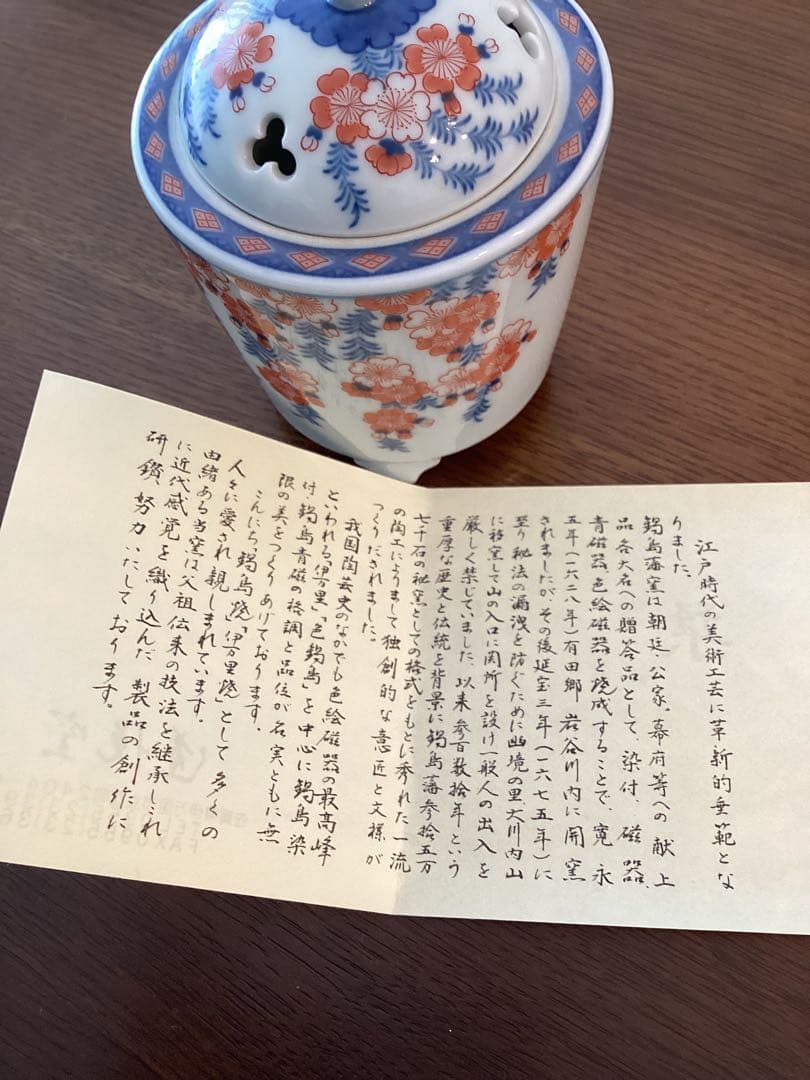 江戸時代の美術工芸に革新的垂範とな
りました。
鍋島藩窯は朝廷、公家、幕府等への献上
品各大名への贈答品として、染付、磁器、
青磁器、色絵磁器を焼成することで、寛永
五年(一六二八年)有田郷岩谷川内に開窯
されましたが、その後延宝三年(一六七五年)に
至り秘法の漏洩を防ぐために幽境の里、大川内山
に移窯して山の入口に関所を設け一般人の出入を
厳しく禁じていました。以来参百数拾年という
重厚な歴史と伝統を背景に鍋島藩参拾五万
七千石の秘窯としての格式をもとに秀れた一流
の陶工によりまして独創的な意匠と文様が
つくりだされました。
我国陶芸史のなかでも色絵磁器の最高峰
といわれる「伊万里」「色鍋島」を中心に鍋島染
付、鍋島青磁の格調と品位が名実ともに無
限の美をつくりあげております。
こんにち「鍋島焼」「伊万里焼」として多くの
人々に愛され親しまれています。
由緒ある当窯は父祖伝来の技法を継承しこれ
に近代感覚を織り込んだ製品の創作に
研鑽、努力いたしております。